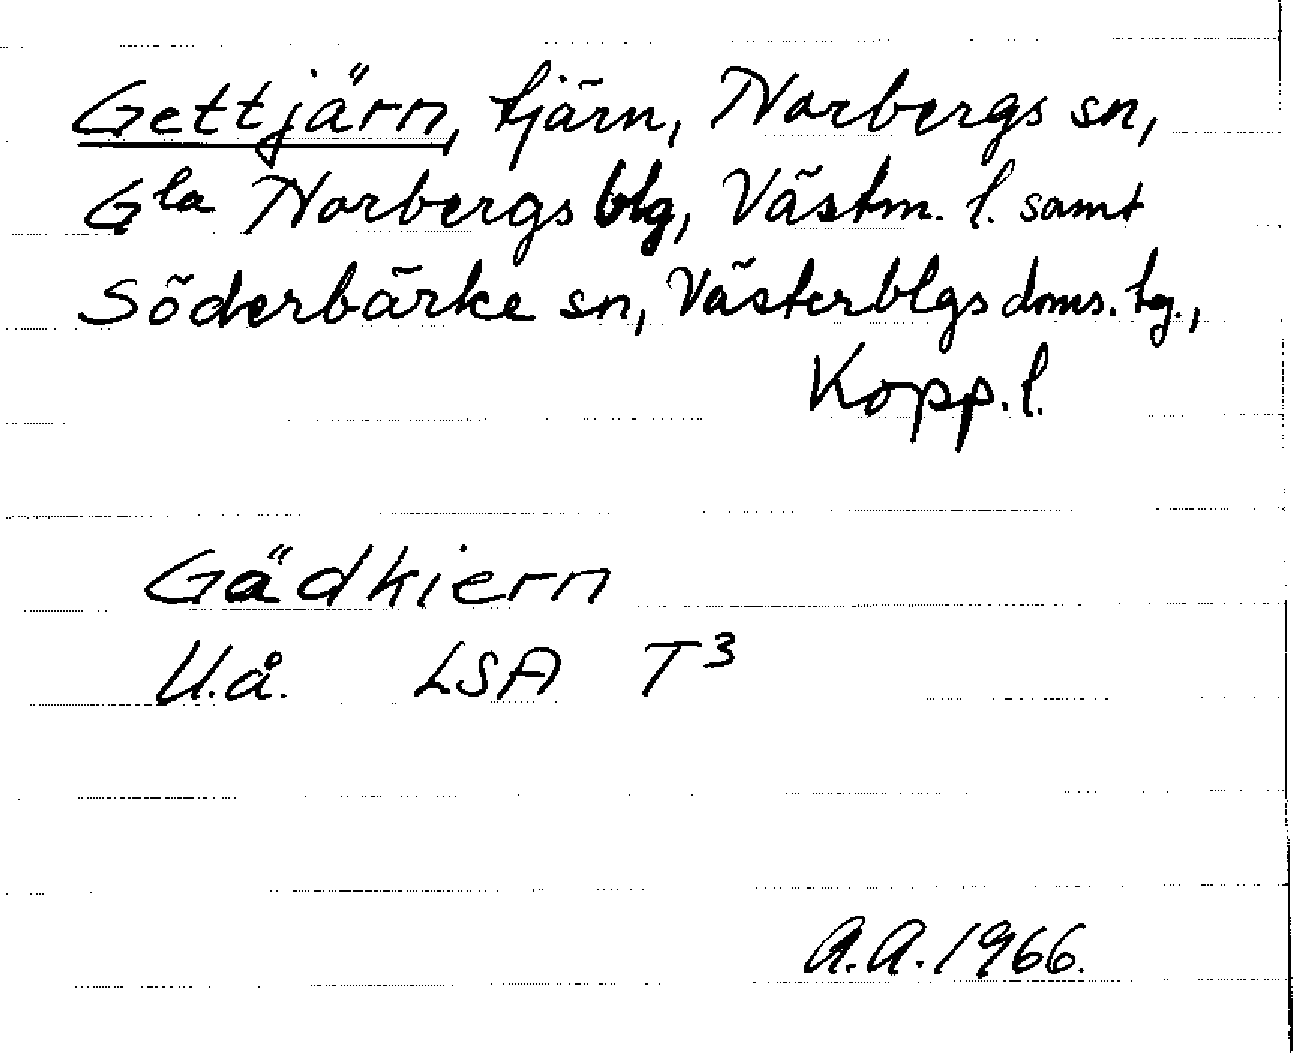 Gettjärn, tjärn, Norbergs sn,
Gla Norbergs blg, Västm. l. samt
Söderbärke sn, Västerblgs doms. hg.,
Kopp. l.
Gädkiern
U.å. LSA T3
A.A. 1966.